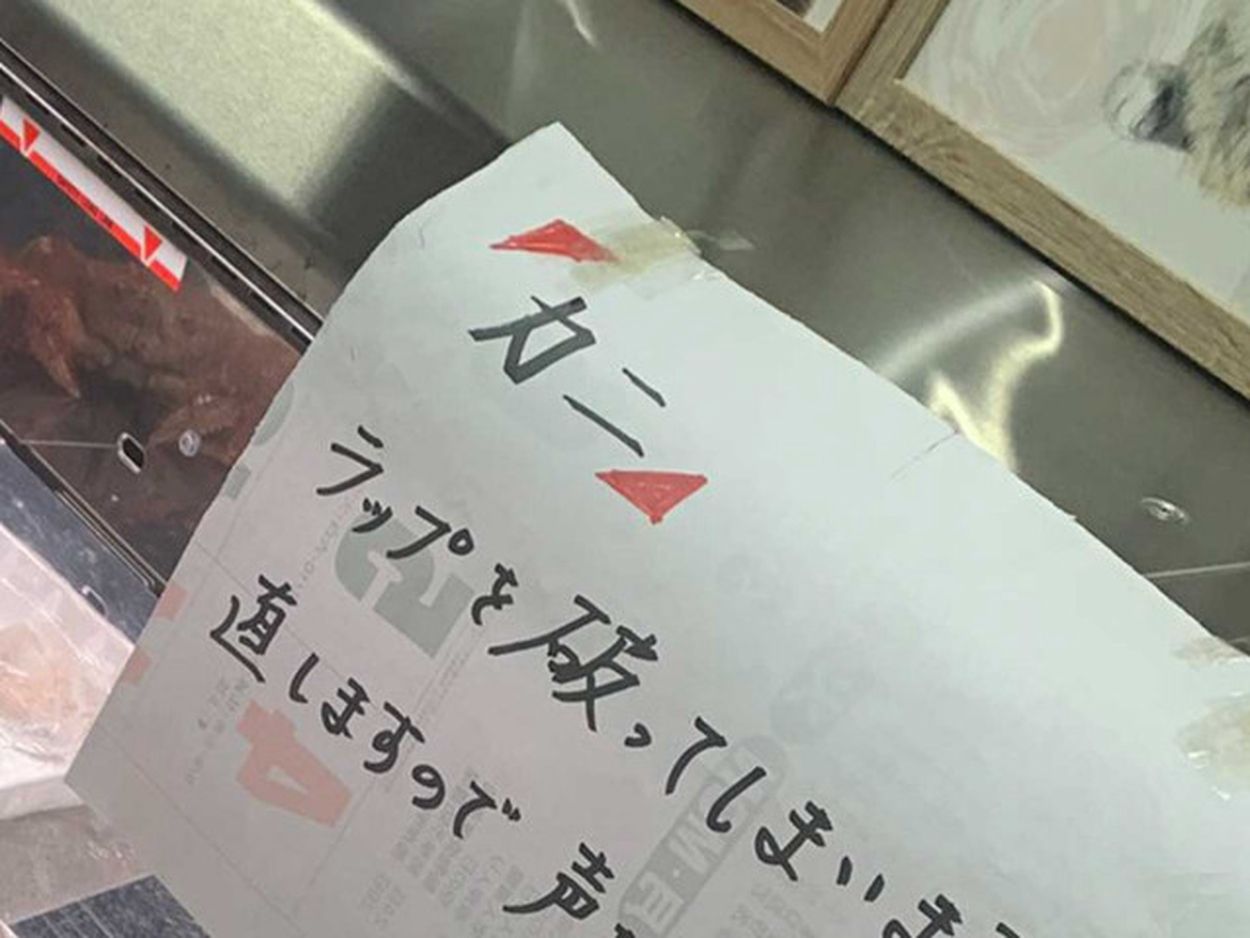 カニ
ラップを破ってしまいま
直しますので 声